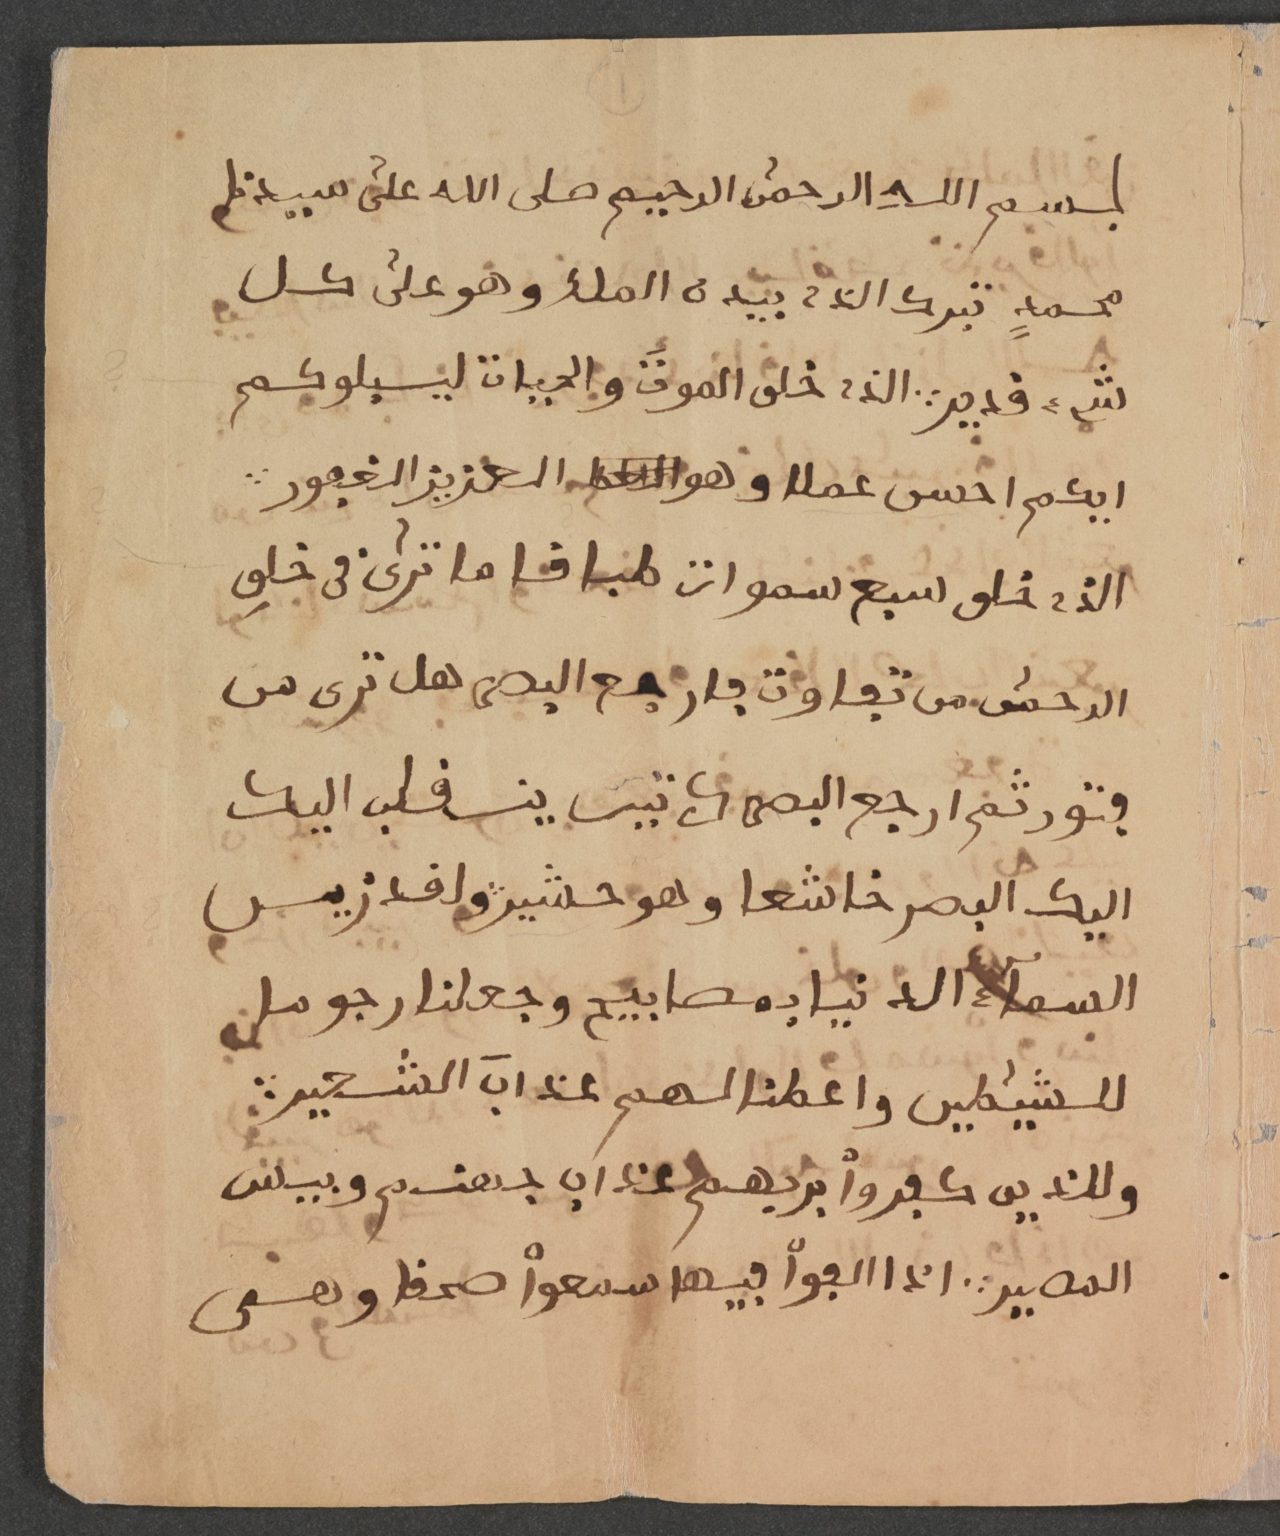 بسم اللهِ الرحمٰن الرحيم صلى الله علىٰ سيدنا
محمدٍ تبرك الذي بيده الملك وهو علىٰ كل
شيء قدير ∴ الذي خلق الموتَ والحيات ليسبلوكم
ايكم احسن عملا وهو العزيز الغفور ∴
الذي خلق سبع سموات طباقا ما ترىٰ في خلقِ
الرحمٰن من تفاوت فارجع البصر هل ترى من
فتور ثم ارجع البصر كرتين ينسقلب اليك
اليك البصر خاشعا وهو حشير ∴ ولقد زين
السمآء الدنيا بمصابيح وجعلنا رجوما
للشيٰطين واعطنا لهم عذابَ الشعير ∴
وللذين كفروا بربهم عذاب جهنم وبيس
المصير ∴ اذا القوا فيها سمعوا صحقا وهى